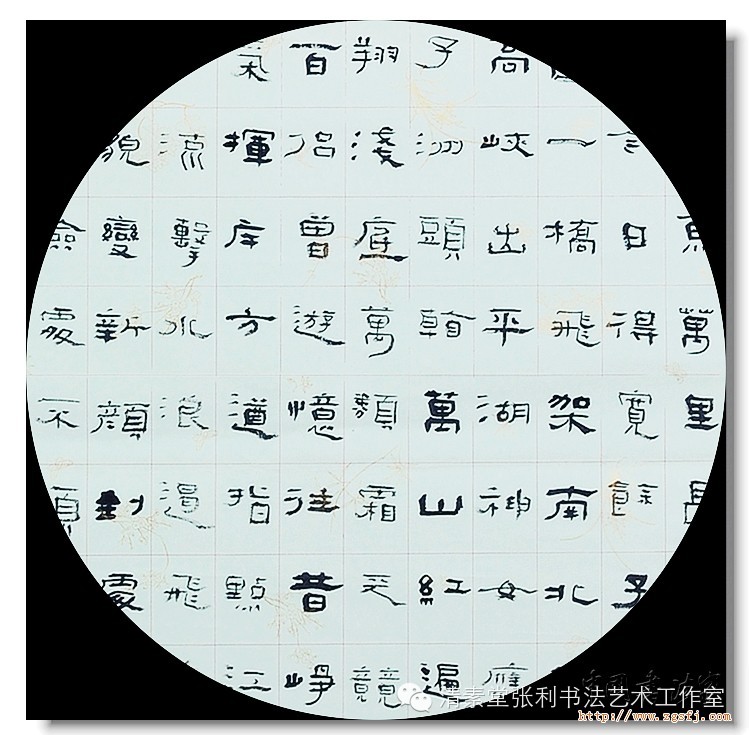 魚萬里長
今日得寬餘子
一橋飛架南北
高峽出平湖神女應
子洲頭看萬山紅遍
翔淺底萬類霜天競
百侶曾遊憶往昔崢
氣揮斥方遒指點江
流擊水浪遏飛
貌變新顏到處
險處不須
清素堂张利书法艺术工作室
http://www.zgsfj.com